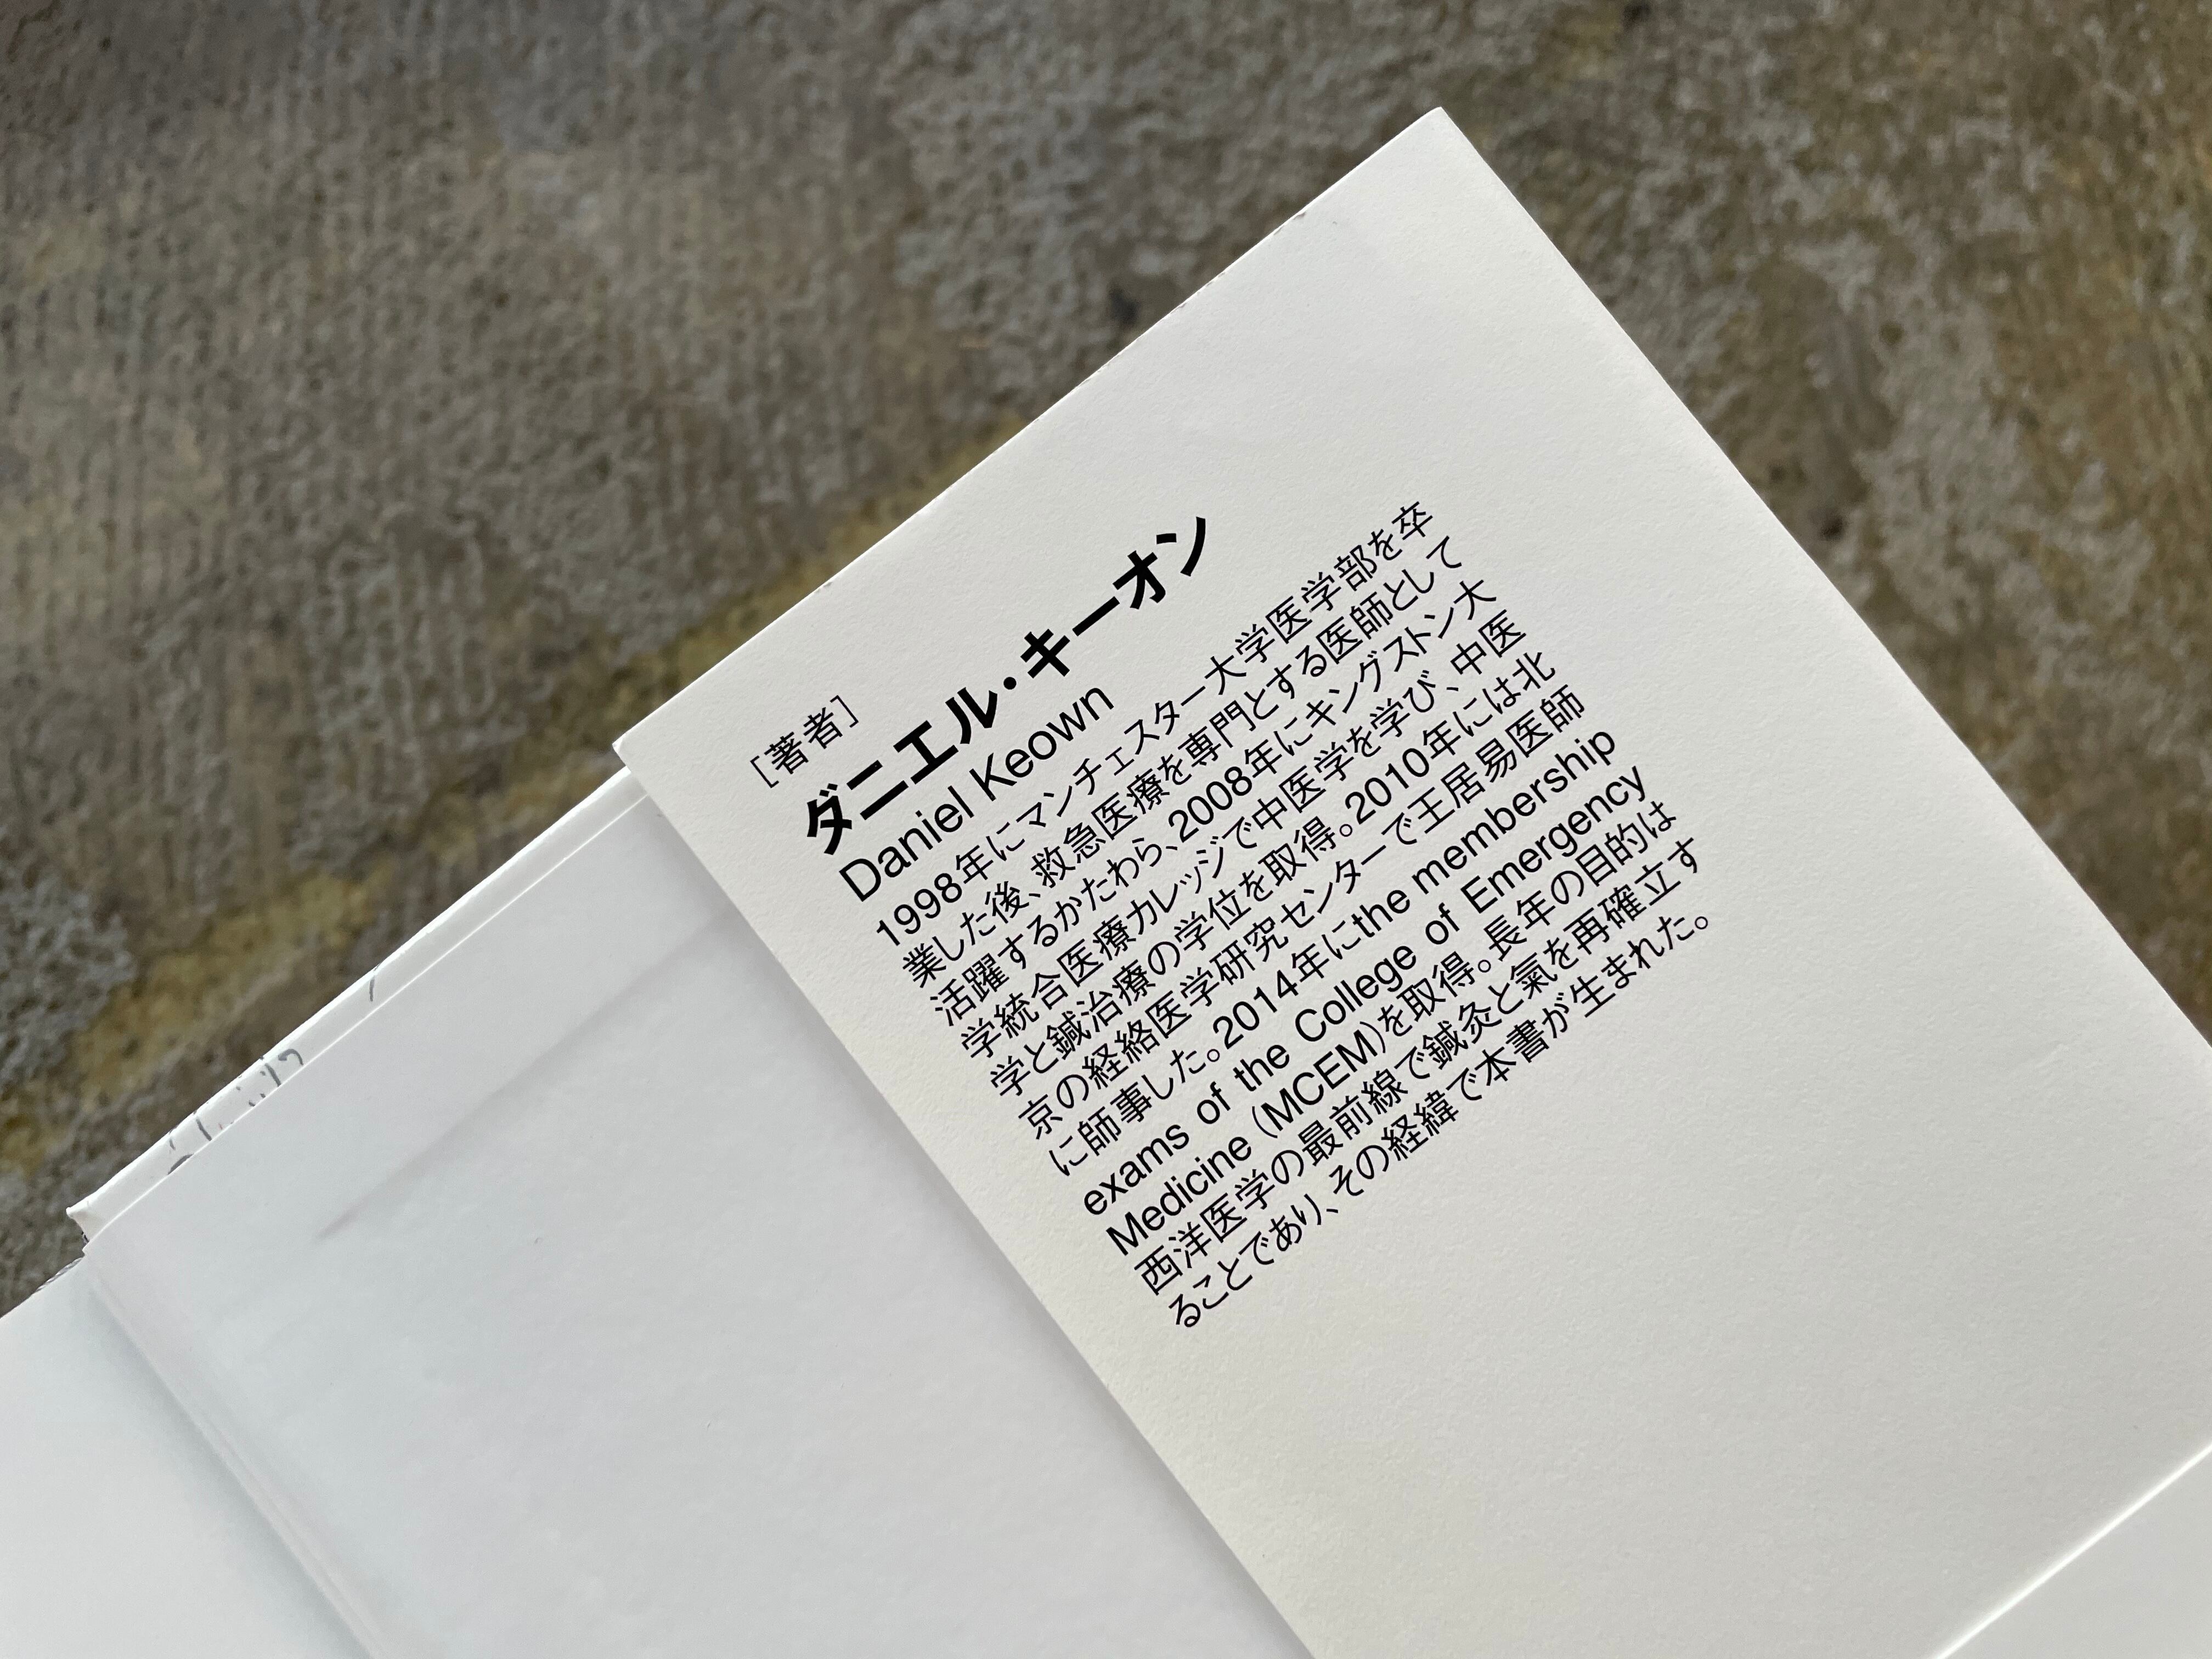 ［著者］
ダニエル・キーオン
Daniel Keown
1998年にマンチェスター大学医学部を卒
業した後、救急医療を専門とする医師として
活躍するかたわら、2008年にキングストン大
学統合医療カレッジで中医学を学び、中医
学と鍼治療の学位を取得。2010年には北
京の経絡医学研究センターで王居易医師
に師事した。2014年にthe membership
exams of the College of Emergency
Medicine (MCEM)を取得。長年の目的は
西洋医学の最前線で鍼灸と氣を再確立す
ることであり、その経緯で本書が生まれた。